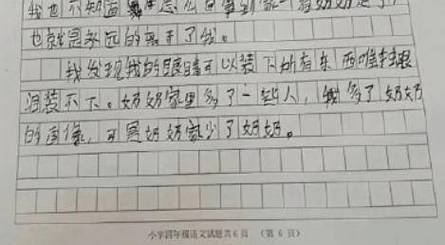 我也不知道怎么回事到家一看奶奶走了
也就是永远的离开了我。
我发现我的眼睛可以装下所有东西唯独眼
泪装不下。奶奶家里多了一些人，我多了奶奶
的画像，可是奶奶家少了奶奶。
小学四年级语文试题共6页 （第6页）